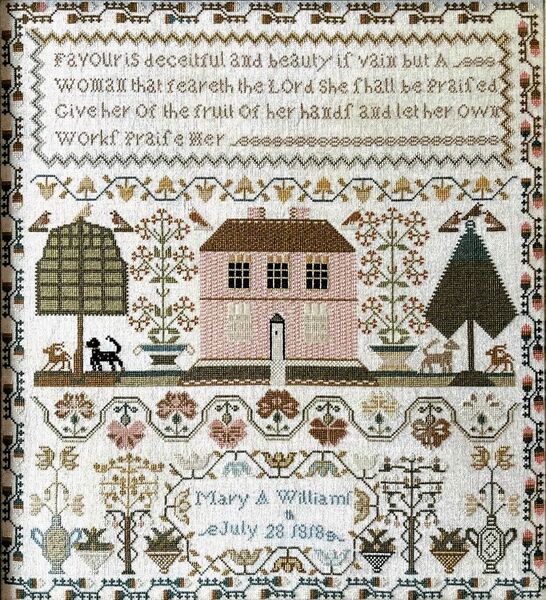 Favour is deceitful and beauty if vain but A
Woman that feareth the Lord She fhall be Praifed
Give her Of the fruit Of her handf and let her Own
Workf Praife Her
Mary A Williamf
July 28 1818